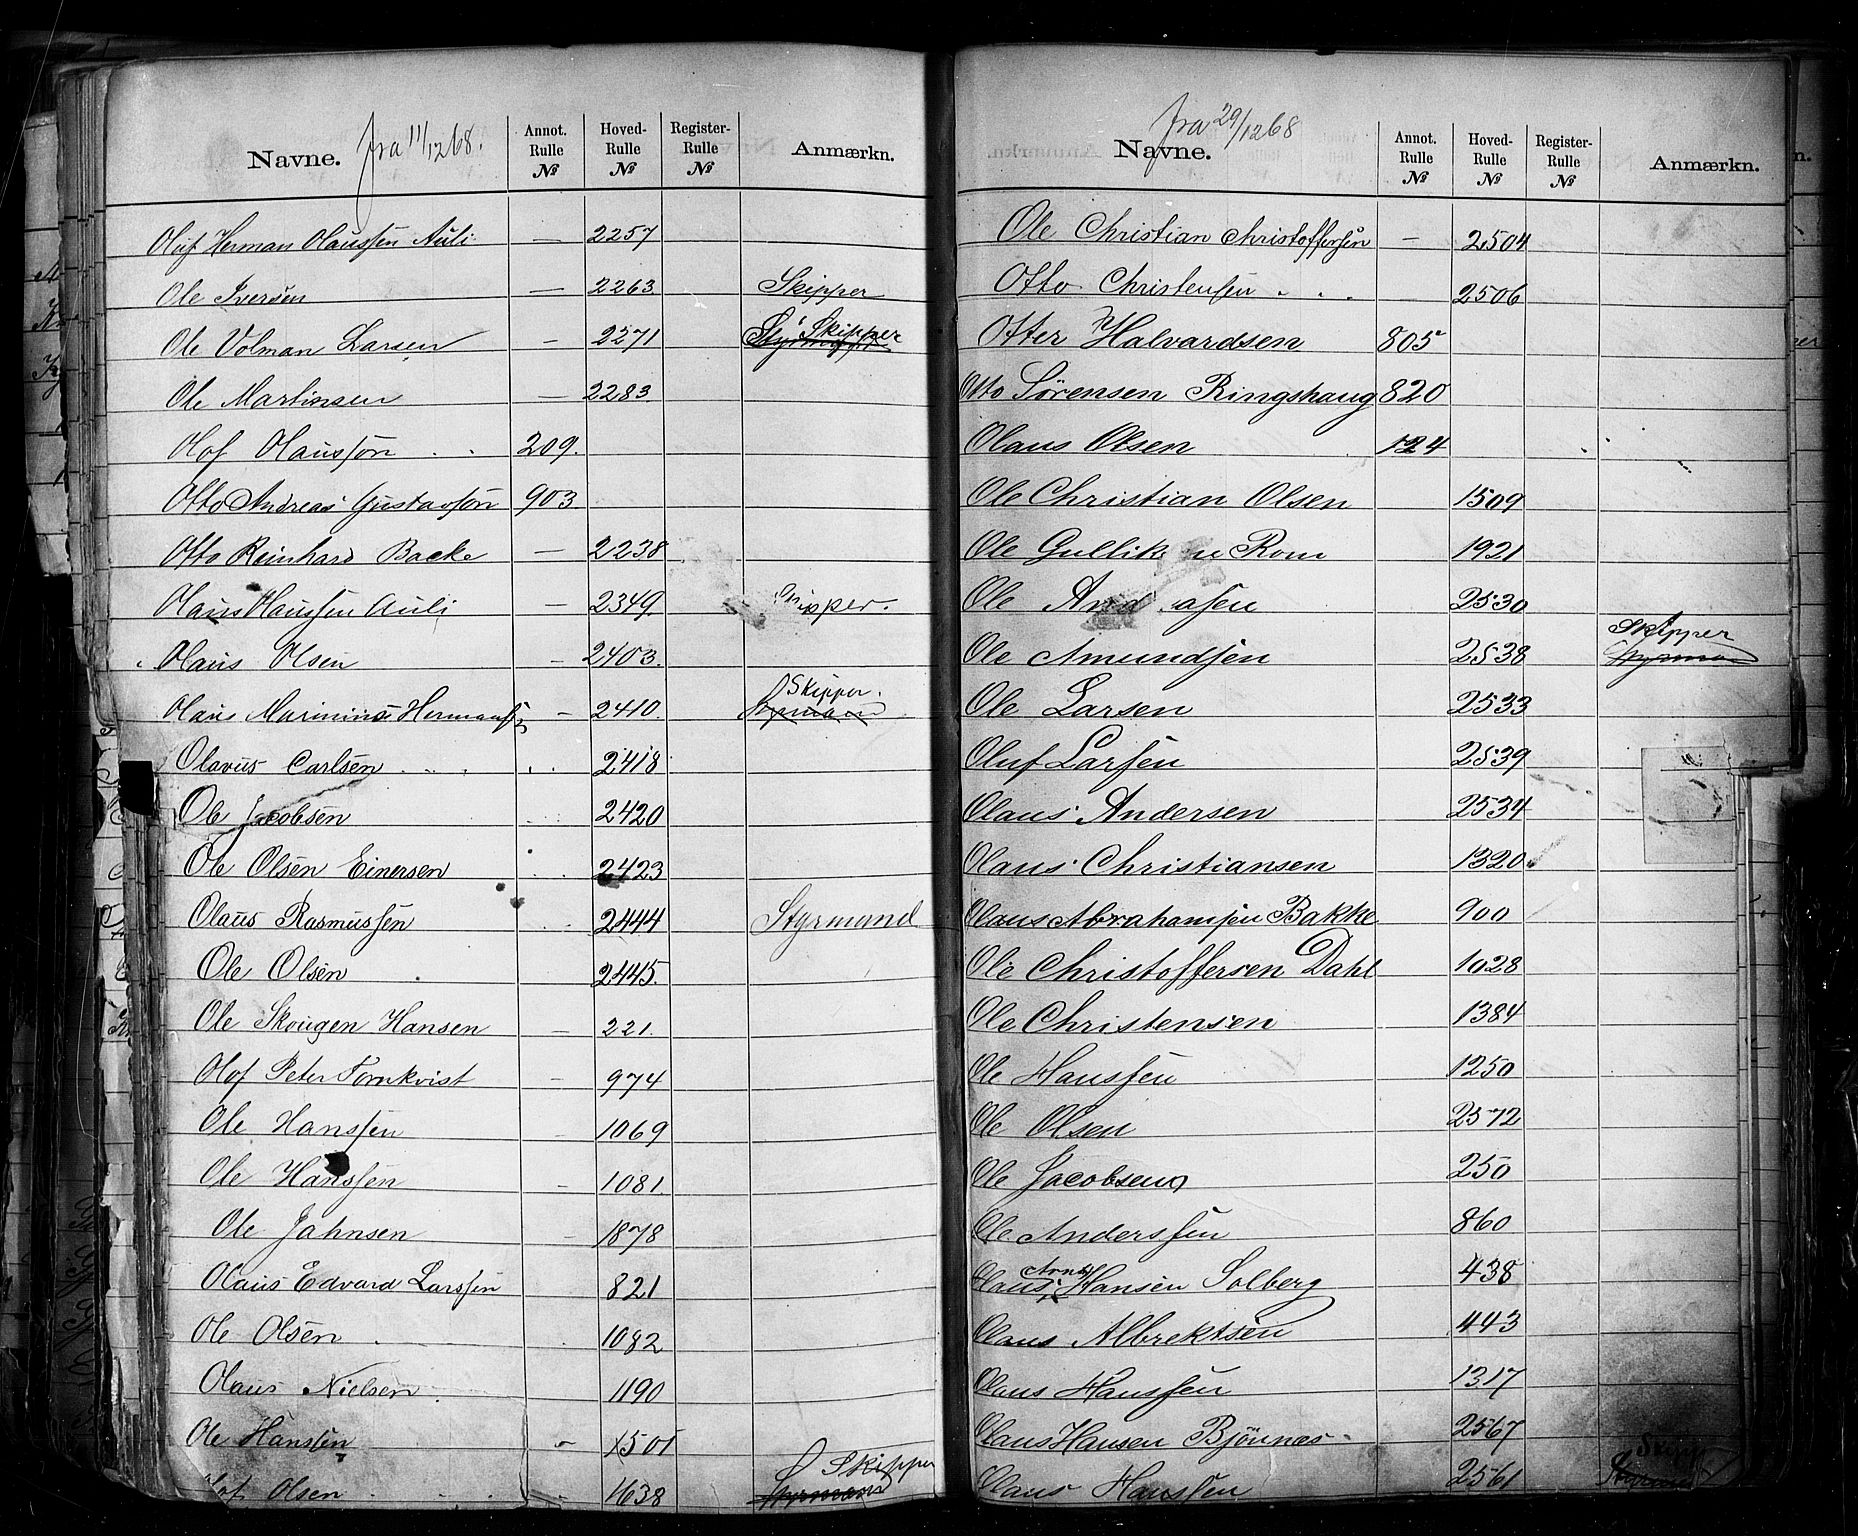 Navne. fra 11/12 68. Annot. Rulle № Hoved- Rulle № Register- Rulle № Anmærkn.
Oluf Herman Olaussen Auli — 2257
Ole Iversen — 2263 Skipper
Ole Volman Larsen — 2271 Skipper
Ole Martinsen — 2283
Olof Olausson 209.
Otto Andreas Gustavson 903
Otto Reinhard Backe — 2238
Olaus Olaussen Auli — 2349 Skipper.
Olaus Olsen — 2403.
Olaus Marinius Hermans — 2410. Skipper. Styrmand
Olavus Carlsen 2418
Ole Jacobsen 2420
Ole Olsen Einersen 2423
Olaus Rasmussen 2444 Styrmand
Ole Olsen 2445.
Ole Skougen Hansen — 221.
Olof Peter Tornkvist — 974
Ole Hanssen 1069
Ole Hanssen — 1081.
Ole Jahnsen — 1878
Olaus Edvard Larssen 821
Ole Olsen 1082
Olaus Nielsen 1190
Ole Hanssen — 1501
Olof Olsen 1638 Skipper Styrmand
Navne. fra 29/12 68 Annot. Rulle № Hoved- Rulle № Register- Rulle № Anmærkn.
Ole Christian Christoffersen — 2504
Otto Christensen 2506
Otter Halvardsen 805
Otto Sørensen Ringshaug 820
Olaus Olsen 124
Ole Christian Olsen 1509
Ole Gulliksen Rom 1921
Ole Andreasen 2530
Ole Amundsen 2538 Skipper Styrmand
Ole Larsen 2533
Oluf Larsen 2539
Olaus Andersen 2534
Olaus Christiansen 1320
Olaus Abrahamsen Bakke 900
Ole Christoffersen Dahl 1028
Ole Christensen 1384
Ole Hanssen 1250
Ole Olsen 2572
Ole Jacobsen 250
Ole Anderssen 860
Olaus Arnt Hansen Solberg 438
Olaus Albrektsen 443
Olaus Hanssen 1317
Olaus Hansen Bjönnes 2567
Olaus Hanssen 2561 Skipper Styrmand